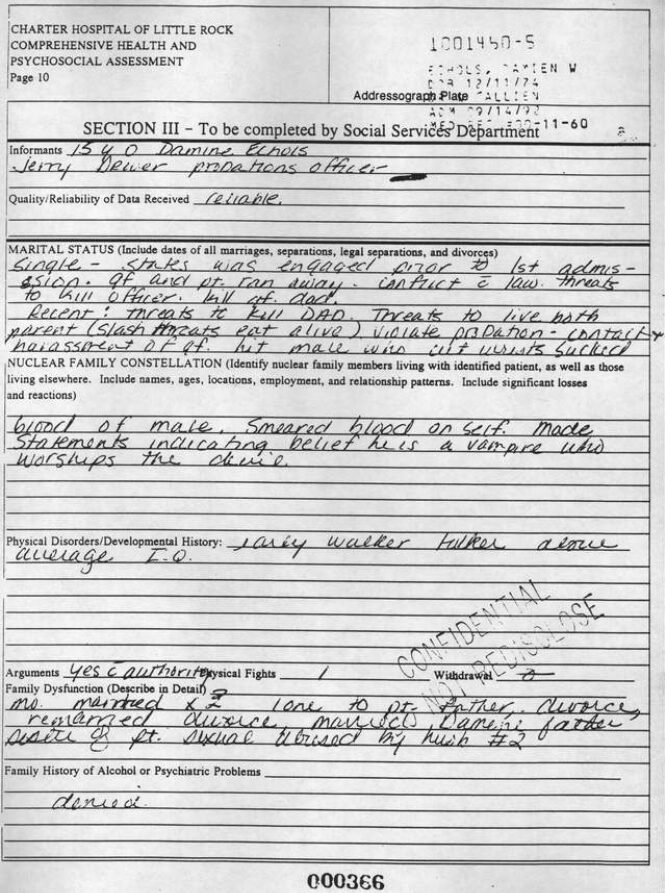 CHARTER HOSPITAL OF LITTLE ROCK
COMPREHENSIVE HEALTH AND
PSYCHOSOCIAL ASSESSMENT
Page 10
1001450-5
ECHOLS, DAMIEN W
DOB 12/11/74
Addressograph Plate
ADM 09/14/92
11-60
SECTION III – To be completed by Social Services Department
Informants 15 y o Damine Echols
Jerry Driver probations officer
Quality/Reliability of Data Received reliable.
MARITAL STATUS (Include dates of all marriages, separations, legal separations, and divorces)
Single - states was engaged prior to 1st admis-
sion. gf and pt. ran away. conflict c̄ law. threats
to kill officer. kill gf. dad.
Recent: threats to kill DAD. Threats to live both
parent (slash throats eat alive) violate probation - contact
harassment of gf. hit male who cut wrists sucked
NUCLEAR FAMILY CONSTELLATION (Identify nuclear family members living with identified patient, as well as those
living elsewhere. Include names, ages, locations, employment, and relationship patterns. Include significant losses
and reactions)
blood of male. Smeared blood on self. Made
statements indicating belief he is a vampire who
worships the
Physical Disorders/Developmental History: early walker talker above
average I.Q.
CONFIDENTIAL
NOT REDISCLOSE
Arguments yes c̄ authority Physical Fights 1 Withdrawal
Family Dysfunction (Describe in Detail)
mo. married x 2 1 one to pt. father. divorce,
remarried divorce, married father
of pt. sexual abused by husb #2
Family History of Alcohol or Psychiatric Problems
denied.
000366